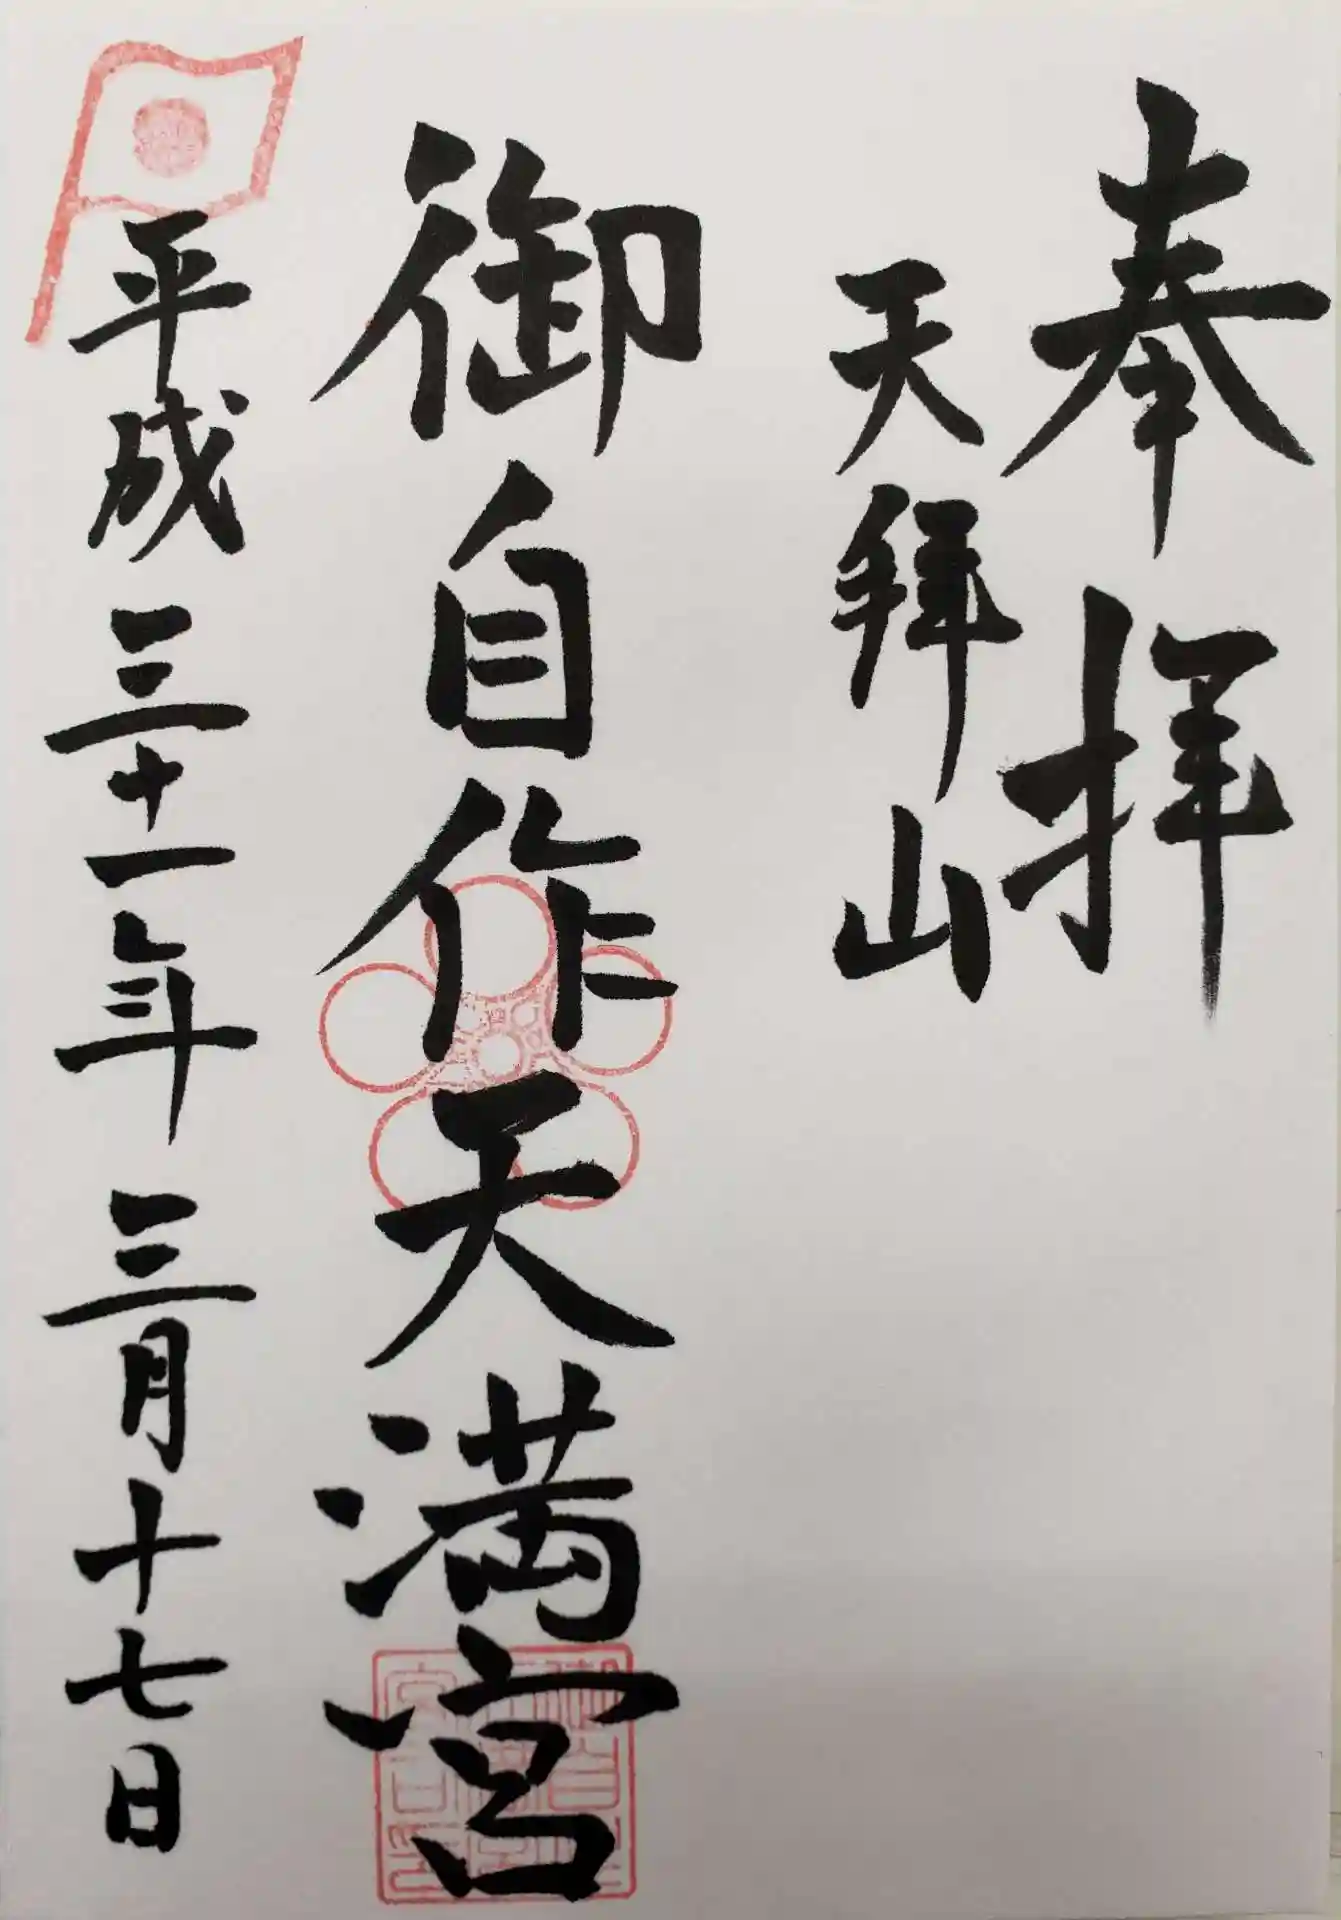 奉拝
天拜山
御自作天満宮
平成三十一年三月十七日